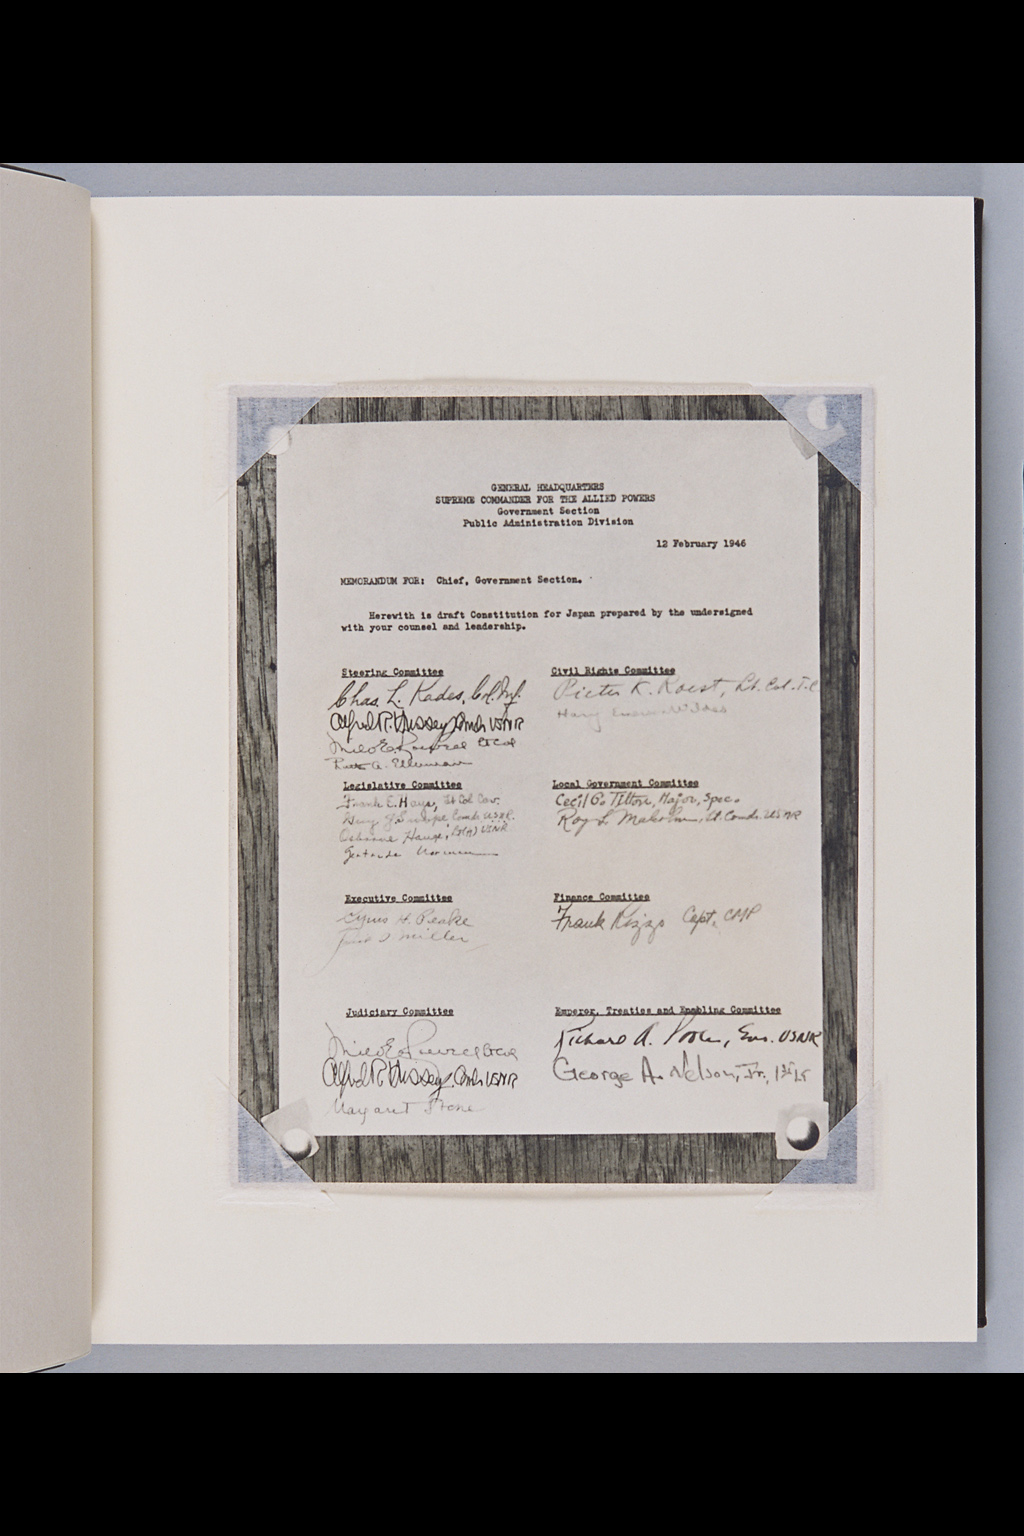 GENERAL HEADQUARTERS
SUPREME COMMANDER FOR THE ALLIED POWERS
Government Section
Public Administration Division
12 February 1946
MEMORANDUM FOR: Chief, Government Section.
Herewith is draft Constitution for Japan prepared by the undersigned
with your counsel and leadership.
Steering Committee
Chas. L. Kades, Col. Inf.
Alfred R. Hussey, Cmdr USNR
Milo E. Rowell Lt Col
Ruth A. Ellerman
Legislative Committee
Frank E. Hays, Lt Col Cav.
Guy J. Swope Comdr. USNR.
Osborne Hauge, Lt(jg) USNR
Gertrude Norman
Executive Committee
Cyrus H. Peake
Miller
Judiciary Committee
Milo E. Rowell Lt Col
Alfred R. Hussey, Cmdr USNR
Margaret Stone
Civil Rights Committee
Pieter K. Roest, Lt. Col.
Harry Emerson Wildes
Local Government Committee
Cecil G. Tilton, Major, Spec.
Roy L. Malcolm, Lt. Comdr. USNR
Finance Committee
Frank Rizzo Capt, CMP
Emperor, Treaties and Enabling Committee
Richard A. Poole, Ens. USNR
George A. Nelson, Jr., 1st Lt